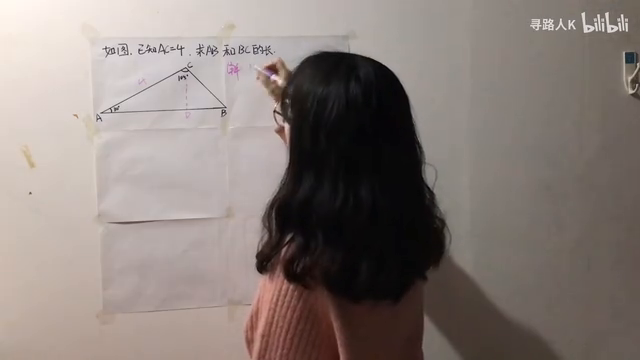 寻路人K bilibili
如图,已知AC=4,求AB和BC的长.
C
105°
4
30°
A
D
B
解